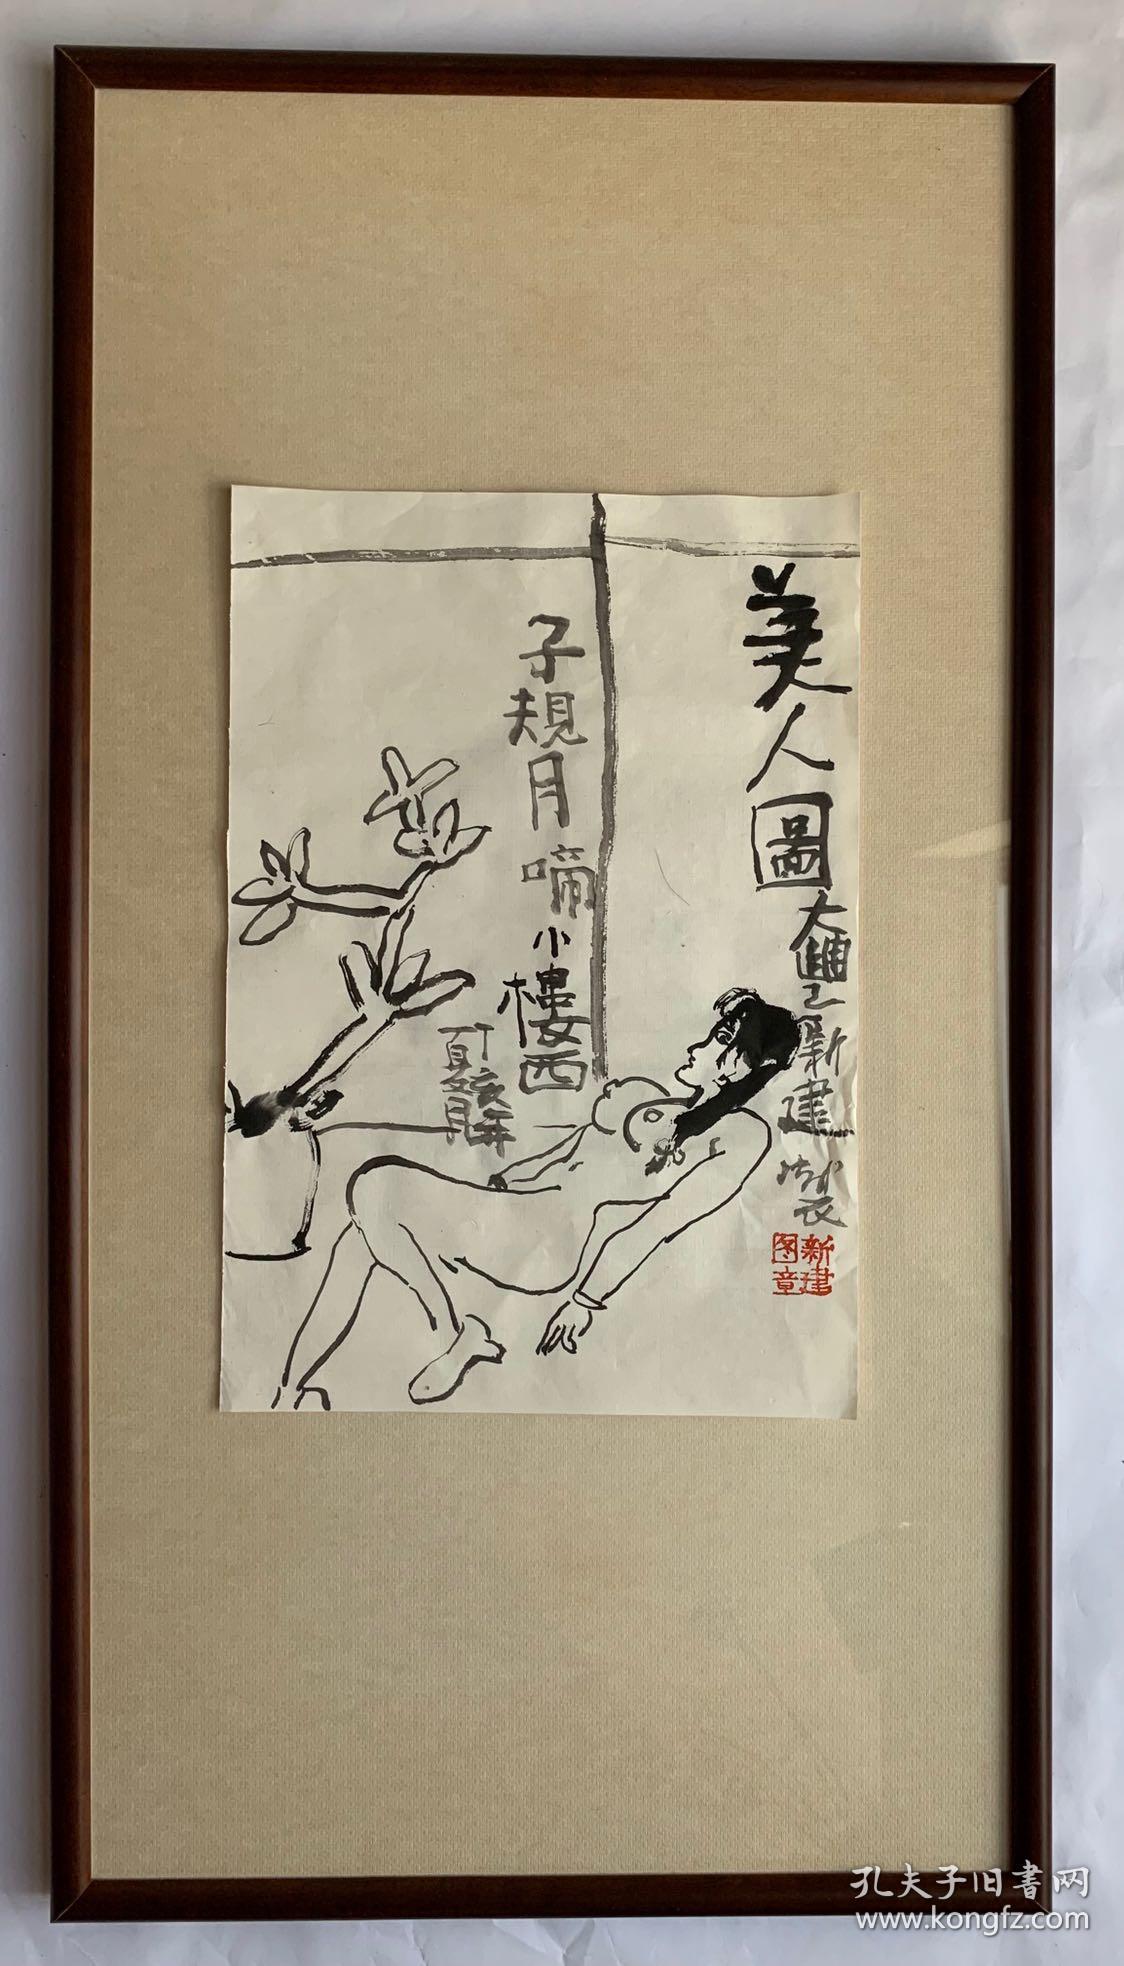 美人圖
大豐之新建製
子規月啼小樓西
丁亥年
夏月
新建
图章
孔夫子旧書网
www.kongfz.com